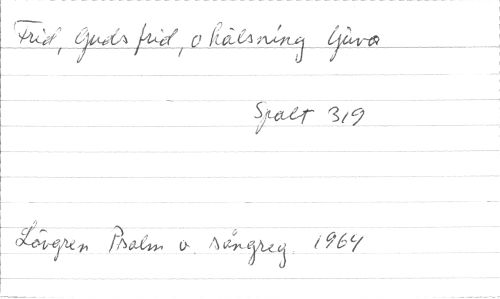 Frid, Guds frid, o hälsning ljuva
Spalt 319
Lövgren Psalm o. sångreg. 1964